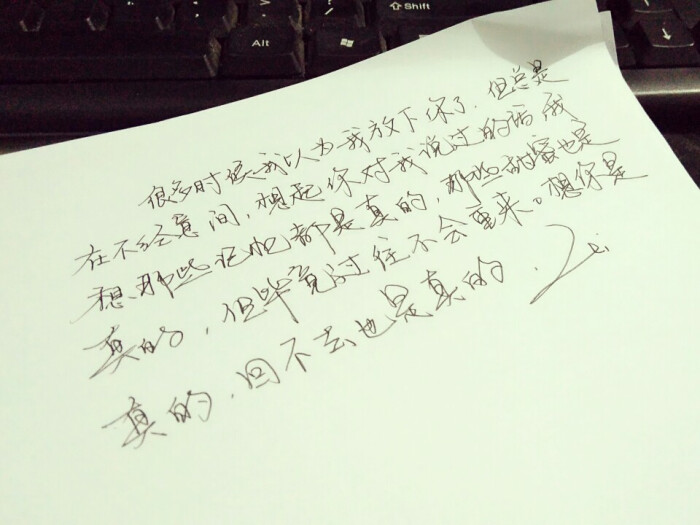 Alt
Shift
很多时候我以为我放下你了，但总是
在不经意间，想起你对我说过的话 我
想、那些记忆都是真的，那些甜蜜也是
真的，但毕竟过往不会重来。想你是
真的，回不去也是真的．